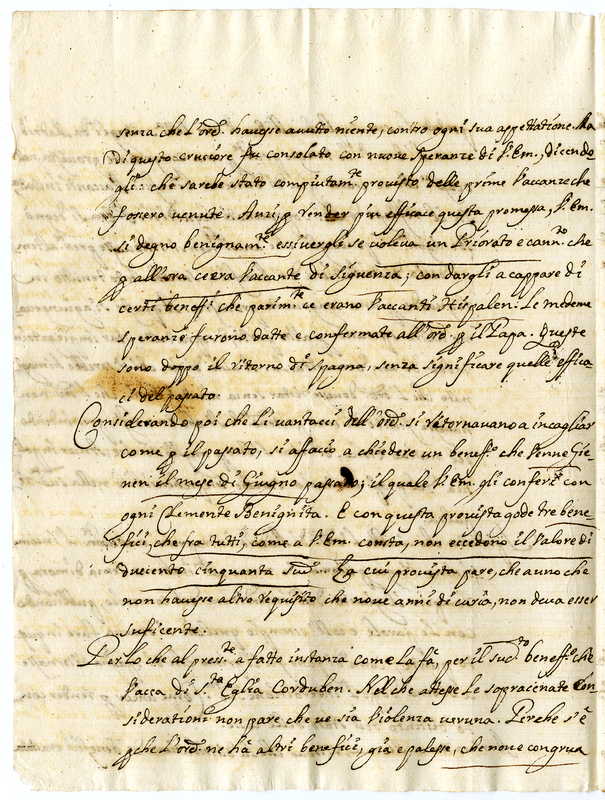 senza che l'ord.e havesse avutto niente, contro ogni sua aspettatione. Ma
di questo cruciore fu consolato con nuove speranze di V. Em., dicendo
gli: che sarebe stato compiutam.te provisto delle prime Vaccanze che
fossero venute. Anzi, p render piu efficace questa promessa, V. Em.
si degno benignam.te essivergli se voleva un Priorato e cann.to che
p all'ora cera Vaccante di Siguenza; con dargli a cappare di
certi beneff.i che parim.te ce erano Vaccanti Hispalen. Le medeme
speranze furono datte e confermate all'ord.e p il Papa. Queste
sono doppo il ritorno di Spagna, senza significare quelle effica
ci del passato.
Considerando poi che li vantacci dell'ord.e si ritornavano a incagliar
come p il passato, si affaccio a chiedere un beneff.o che venne Gie-
nen il mese di Giugno passato; il quale V. Em. gli conferi con
ogni Clemente Benignita. E con questa provista gode tre bene
fici, che fra tutti, come a V. Em. consta, non eccedono il Valore di
duecento cinquanta scu.i. La cui provista pare, che a uno che
non havesse altro requisito che nove anni di curia, non deva esser
suficente.
Per lo che al press.te a fatto instanza come la fa, per il sud.to beneff.o che
Vacca di S.ta Eglia Corduben. Nel che attese le sopracenate Con
siderationi non pare che ve sia Violenza veruna. Perche s'è
p che l'ord.e ne ha altri benefici, gia e palesse, che non e congrua